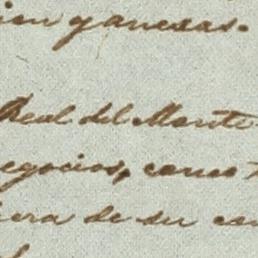 ion y anexas.
Real del Monte
egocios, como
era de su con